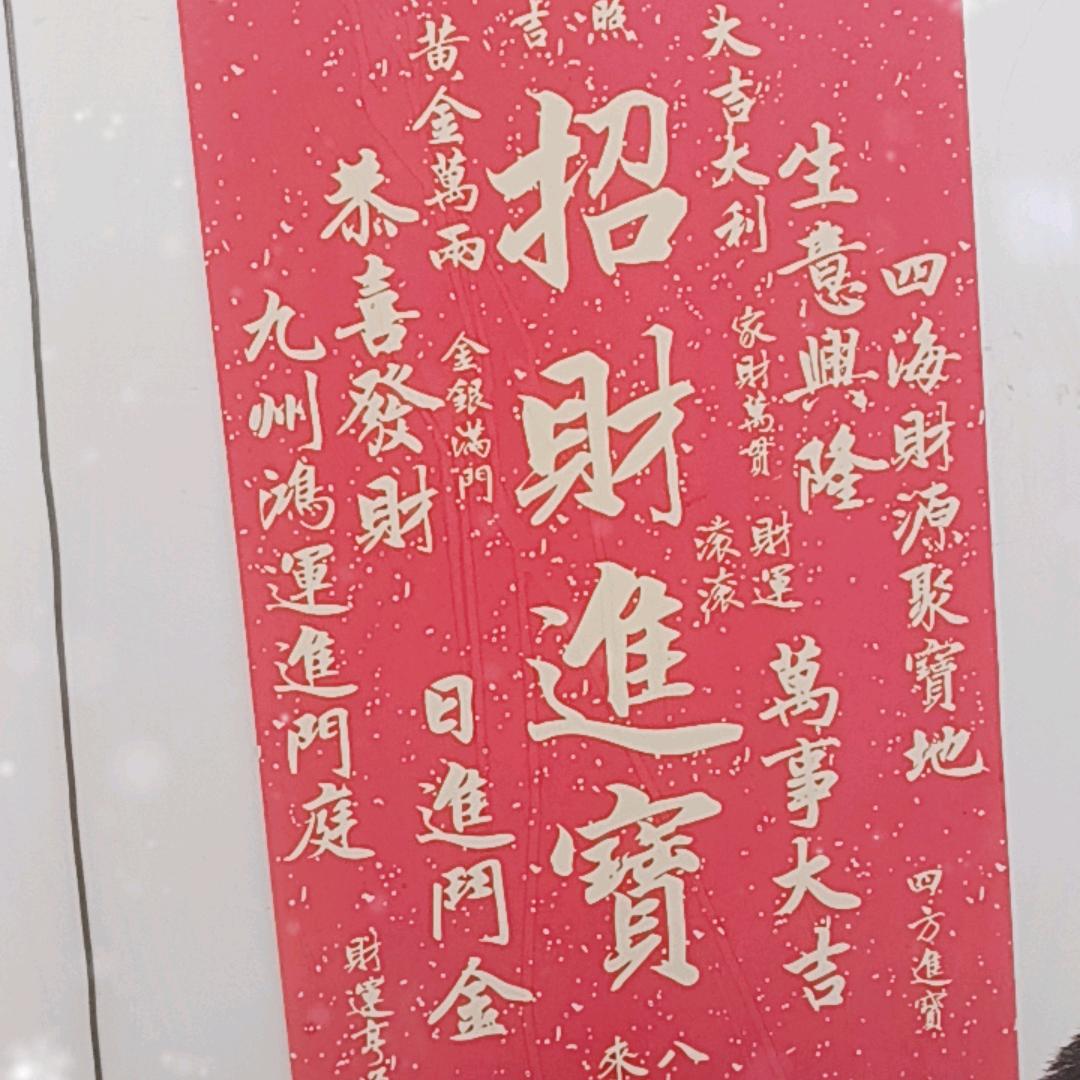 四海財源聚寶地
四方進寶
生意興隆
萬事大吉
大吉大利
家財萬貫
財運
滾滾
照
吉
招財進寶
八
來
黃金萬兩
金銀滿門
日進鬥金
恭喜發財
財運亨
九州鴻運進門庭